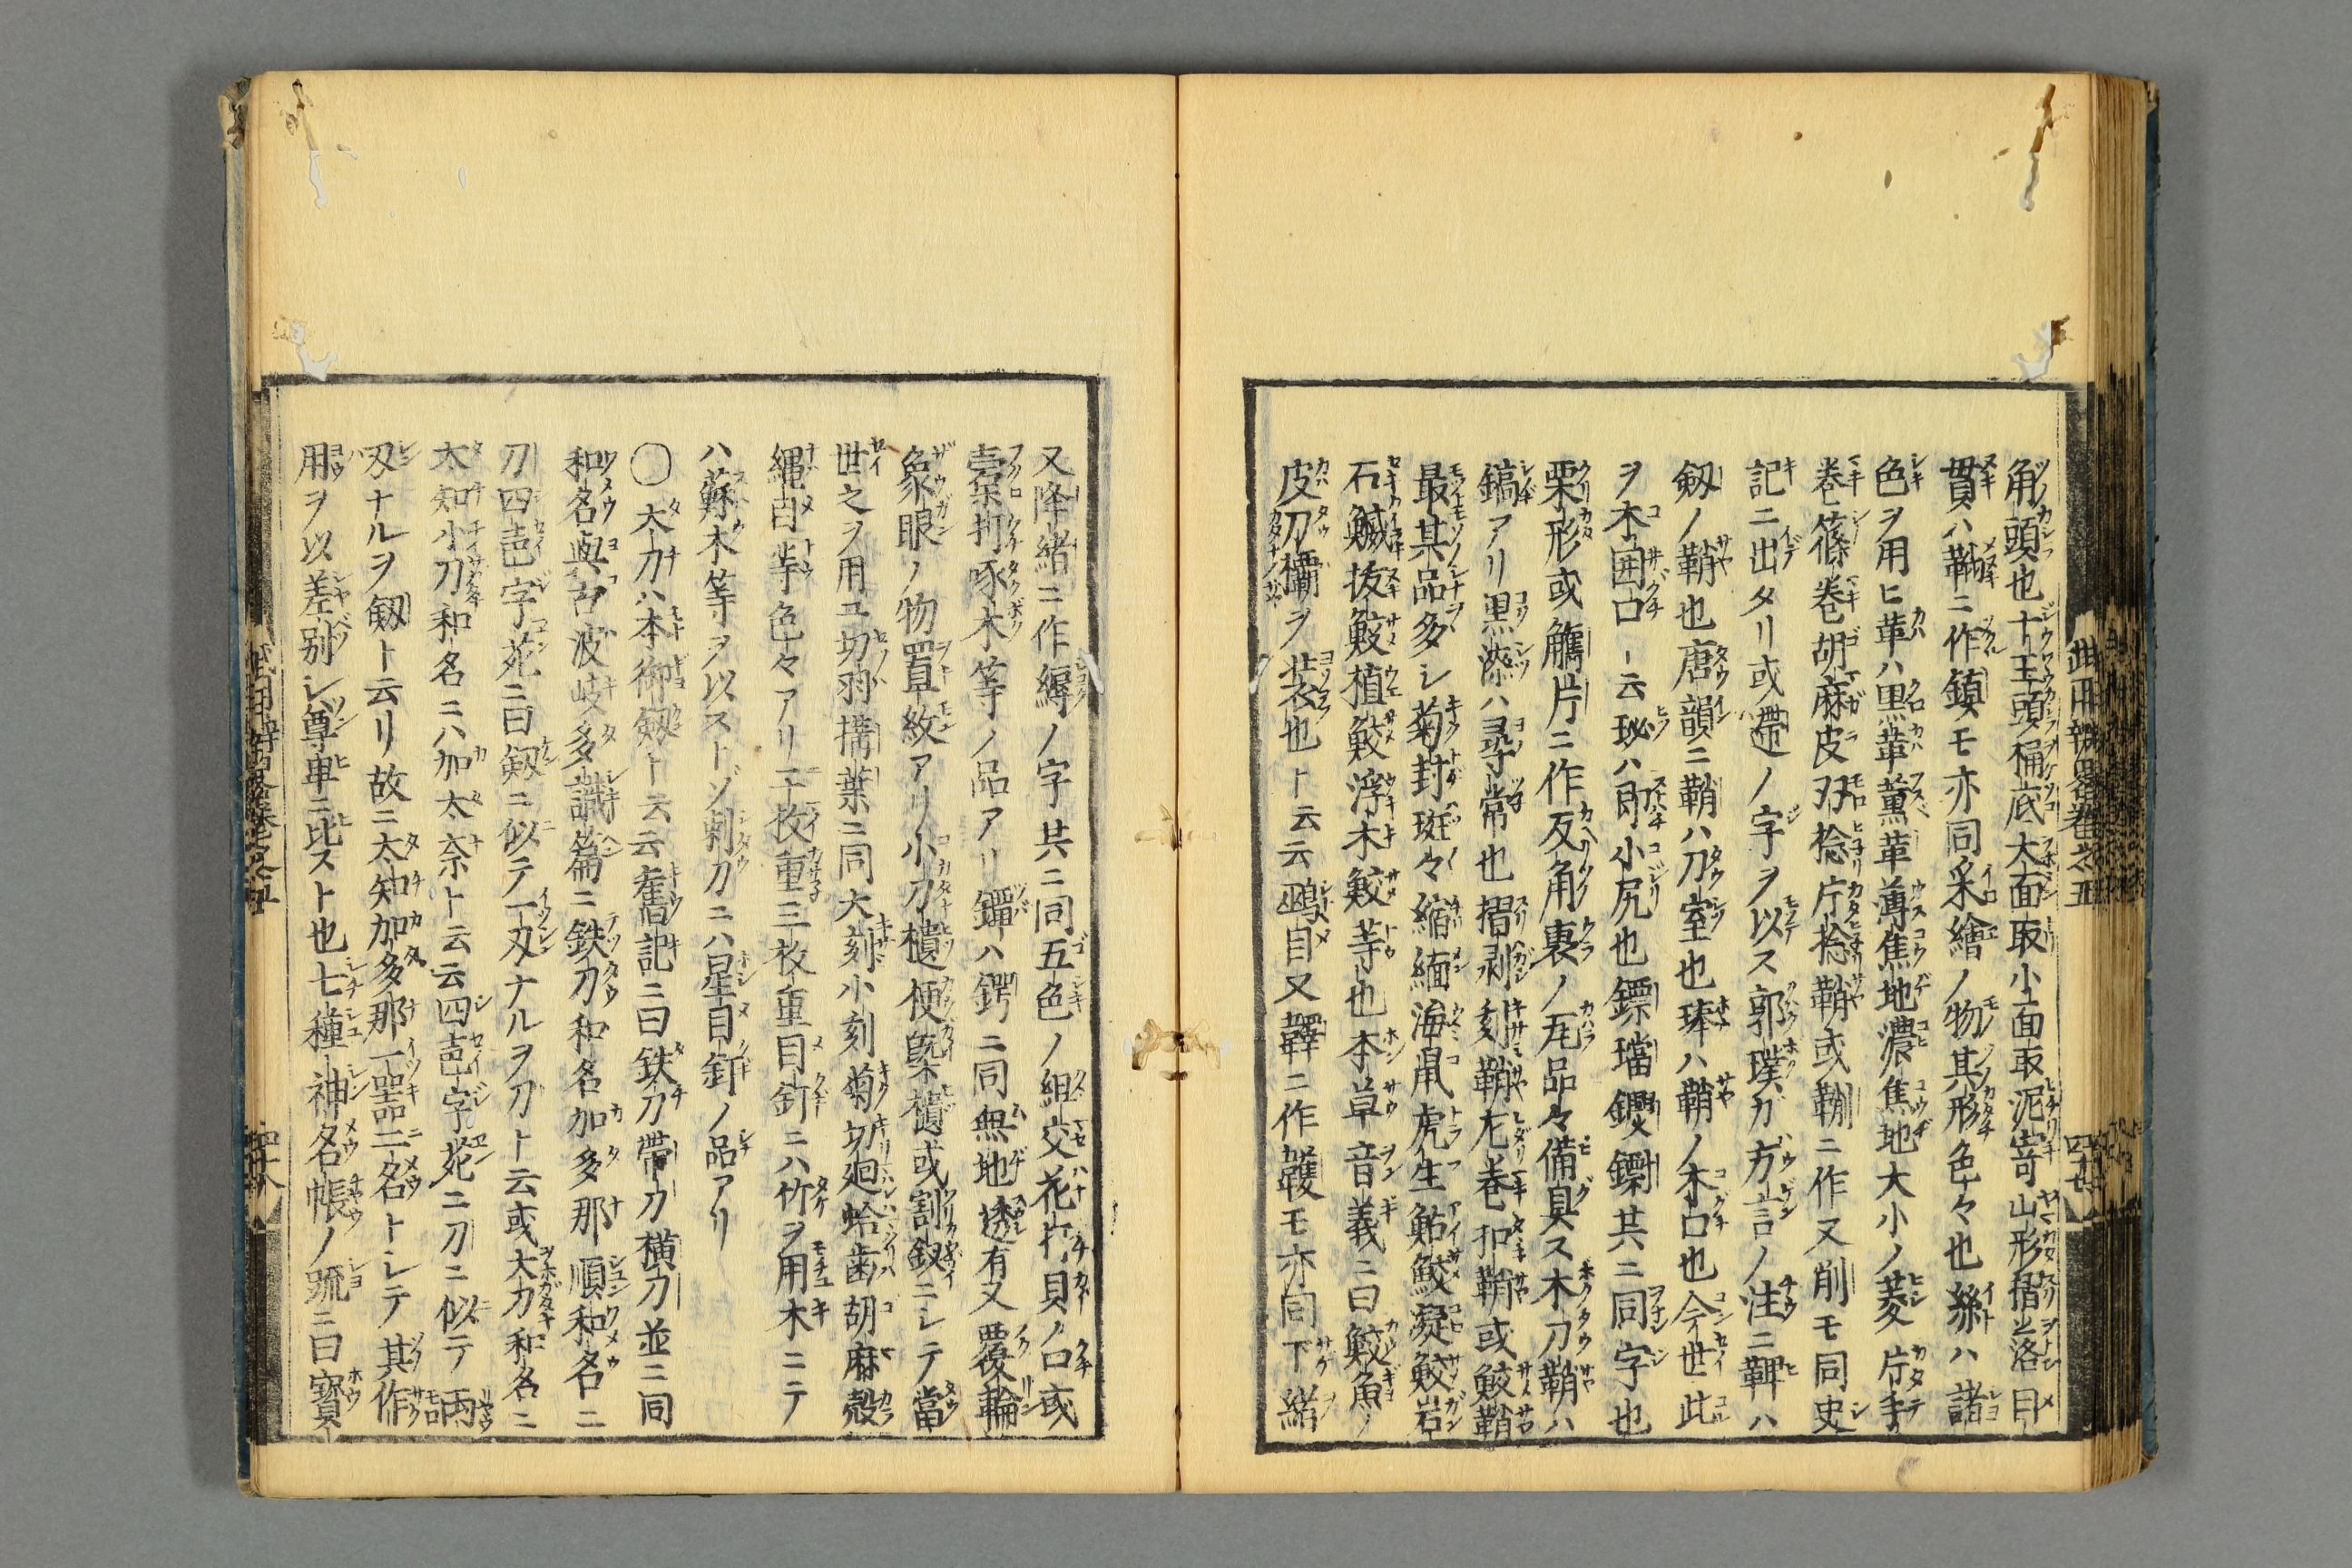 角頭也十王頭桶底大面取小面取泥嵜山形摺㞮落目
貫ハ鞘ニ作鎮モ亦同采繪ノ物其形色々也絲ハ諸
色ヲ用ヒ革ハ黒革薫革薄焦地濃焦地大小ノ菱片手
巻篠巻胡麻皮刕捻片捻鞘或鞩ニ作又削モ同史
記ニ出タリ或遰ノ字ヲ以ス郭璞ガ方言ノ注ニ鞞ハ
剱ノ鞘也唐韻ニ鞘ハ刀室也琫ハ鞘ノ木口也今世此
ヲ木囲口ト云珌ハ卽小尻也鏢璫鐭鏢共ニ同字也
栗形或觹片ニ作反角裏ノ瓦品々備具ス木刀鞘ハ
鎬アリ黒漆ハ尋常也摺剥刻鞘左巻扣鞘或鮫鞘
最其品多シ菊封斑々縮緬海鼠虎生鮎鮫凝鮫岩
石鰄抜鮫植鮫浮木鮫等也本草音義ニ曰鮫魚ノ
皮刀欛ヲ装也ト云云鵐目又鞸ニ作韄モ亦同下緒
又降緒ニ作縟ノ字共ニ同五色ノ組交花打貝ノ口或
嚢打啄木等ノ品アリ鐔ハ鍔ニ同無地透有又覆輪
象眼ノ物置紋アリ小刀櫃便槩櫃或割釼ニシテ當
世之ヲ用ユ切羽搆葉ニ同大刻小刻菊切廻蛤歯胡麻殻
縄目等色々アリ二枚重三枚重目釘ニハ竹ヲ用木ニテ
ハ蘇木等ヲ以ストゾ刺刀ニハ星目釘ノ品アリ
〇大刀ハ本御剱ト云云舊記ニ曰鉄刀帶刀横刀並ニ同
和名與古波岐多識篇ニ鉄刀和名加多那順和名ニ
刀四聲字苑ニ曰剱ニ似テ一刃ナルヲ刀ト云或大刀和名ニ
太知小刀和名ニハ加太奈ト云云四聲字苑ニ刀ニ似テ兩
刃ナルヲ剱ト云リ故ニ太知加多那一器二名トシテ其作
用ヲ以差別シ尊卑ニ比スト也七種神名帳ノ䟽ニ曰寳
武用辨畧卷之五
四十七
武用辨畧卷之五
四十八